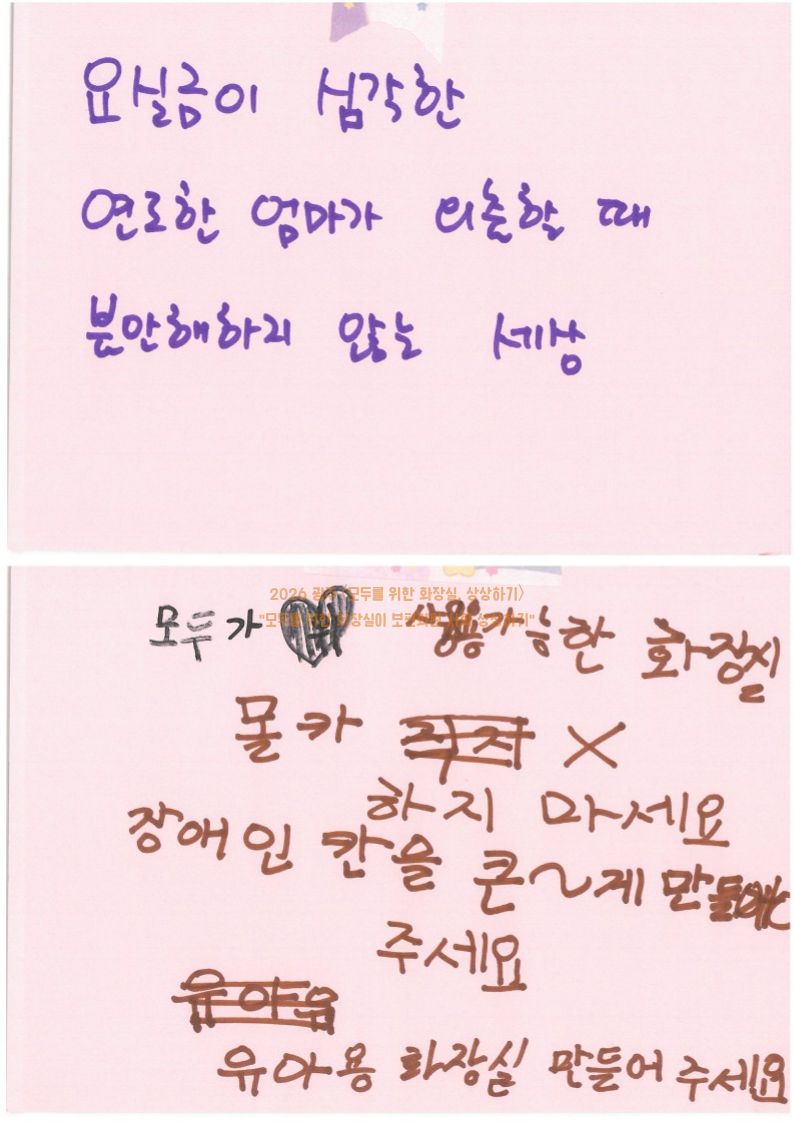 요실금이 심각한
연로한 엄마가 외출할 때
불안해하지 않는 세상
2026 〈모두를 위한 화장실, 상상하기〉
모두가 사용가능한 화장실
몰카 ×
하지 마세요
장애인 칸을 큰~게 만들어
주세요
유아용
유아용 화장실 만들어 주세요